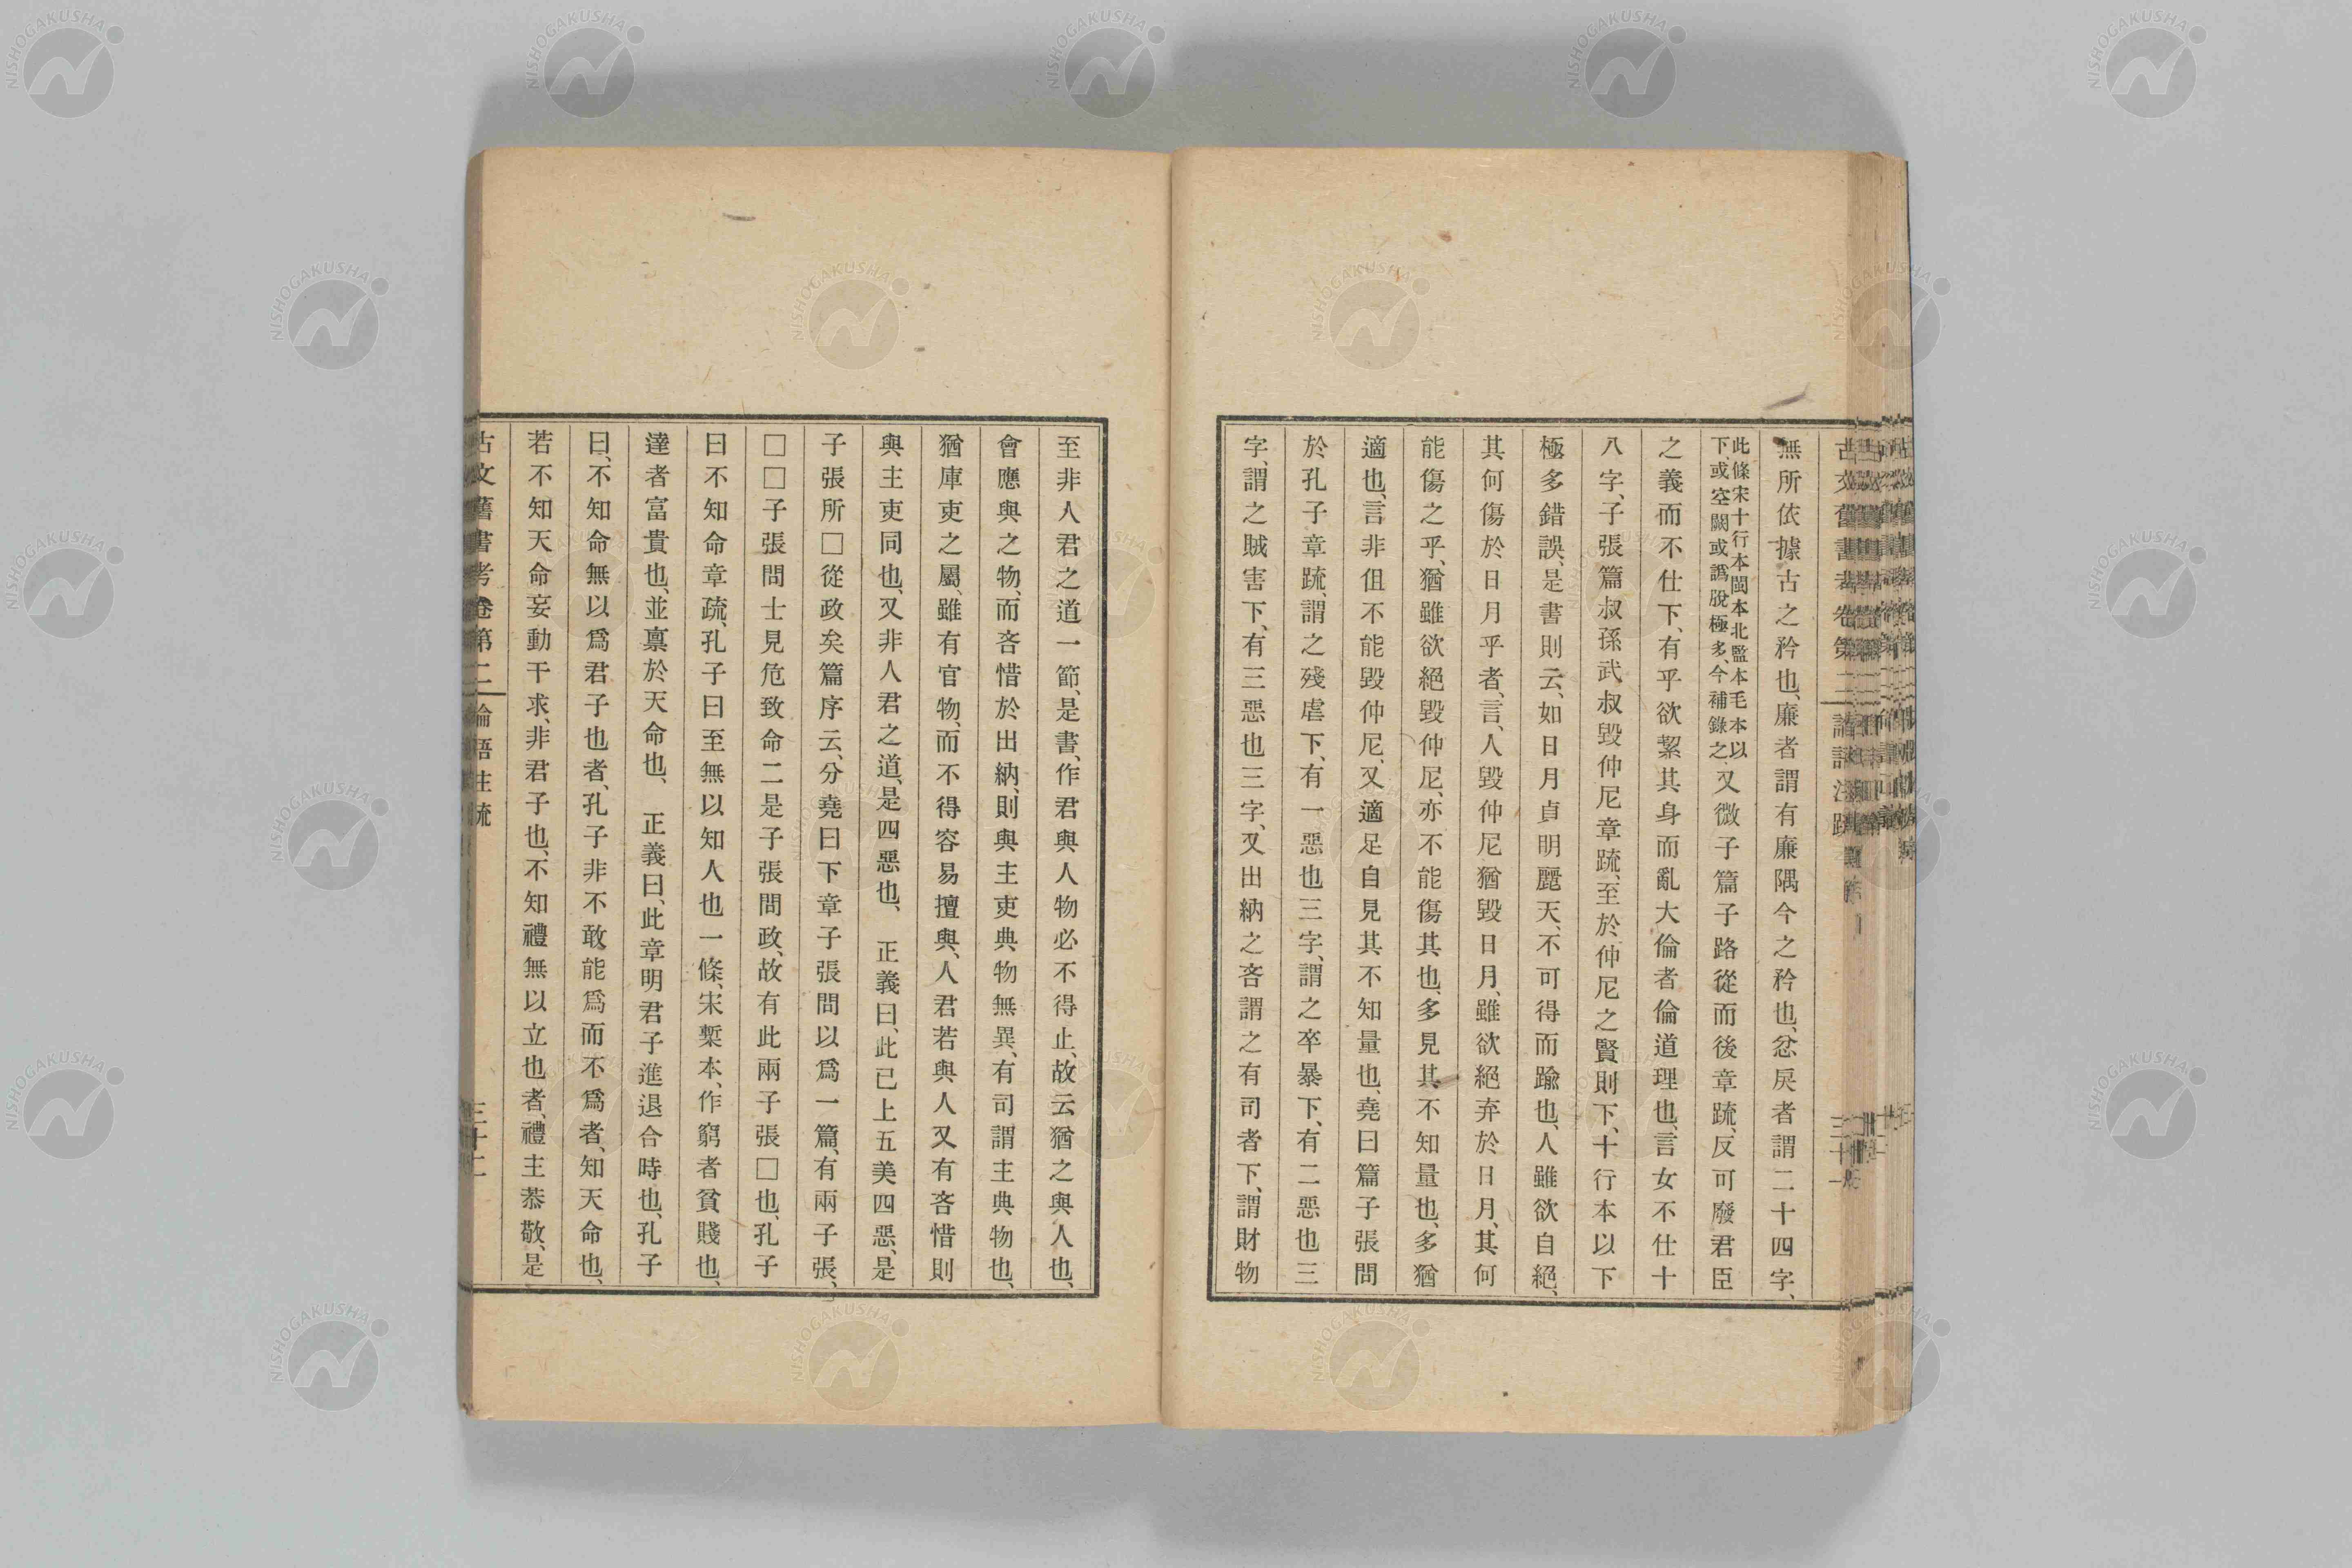 無所依據古之矜也、廉者謂有廉隅今之矜也、忿戾者謂二十四字、
此條宋十行本閩本北監本毛本以
下、或空闕或譌脫極多、今補錄之、
又微子篇子路從而後章疏、反可廢君臣
之義而不仕下、有乎欲絜其身而亂大倫者倫道理也、言女不仕十
八字、子張篇叔孫武叔毀仲尼章疏、至於仲尼之賢則下、十行本以下
極多錯誤、是書則云、如日月貞明麗天、不可得而踰也、人雖欲自絕、
其何傷於日月乎者、言、人毀仲尼猶毀日月、雖欲絕弃於日月、其何
能傷之乎、猶雖欲絕毀仲尼、亦不能傷其也、多見其不知量也、多猶
適也、言非但不能毀仲尼、又適足自見其不知量也、堯曰篇子張問
於孔子章疏、謂之殘虐下、有一惡也三字、謂之卒暴下、有二惡也三
字、謂之賊害下、有三惡也三字、又出納之吝謂之有司者下、謂財物
至非人君之道一節、是書、作君與人物必不得止、故云猶之與人也、
會應與之物、而吝惜於出納、則與主吏典物無異、有司謂主典物也、
猶庫吏之屬、雖有官物、而不得容易擅與、人君若與人又有吝惜則
與主吏同也、又非人君之道、是四惡也、 正義曰、此已上五美四惡、是
子張所□從政矣篇序云、分堯曰下章子張問以爲一篇、有兩子張、
□□子張問士見危致命二是子張問政、故有此兩子張□也、孔子
曰不知命章疏、孔子曰至無以知人也一條、宋槧本、作窮者貧賤也、
達者富貴也、並禀於天命也、 正義曰、此章明君子進退合時也、孔子
曰、不知命無以爲君子也者、孔子非不敢能爲而不爲者、知天命也、
若不知天命妄動干求、非君子也、不知禮無以立也者、禮主恭敬、是
古文舊書考卷第二 論語注疏 三十二